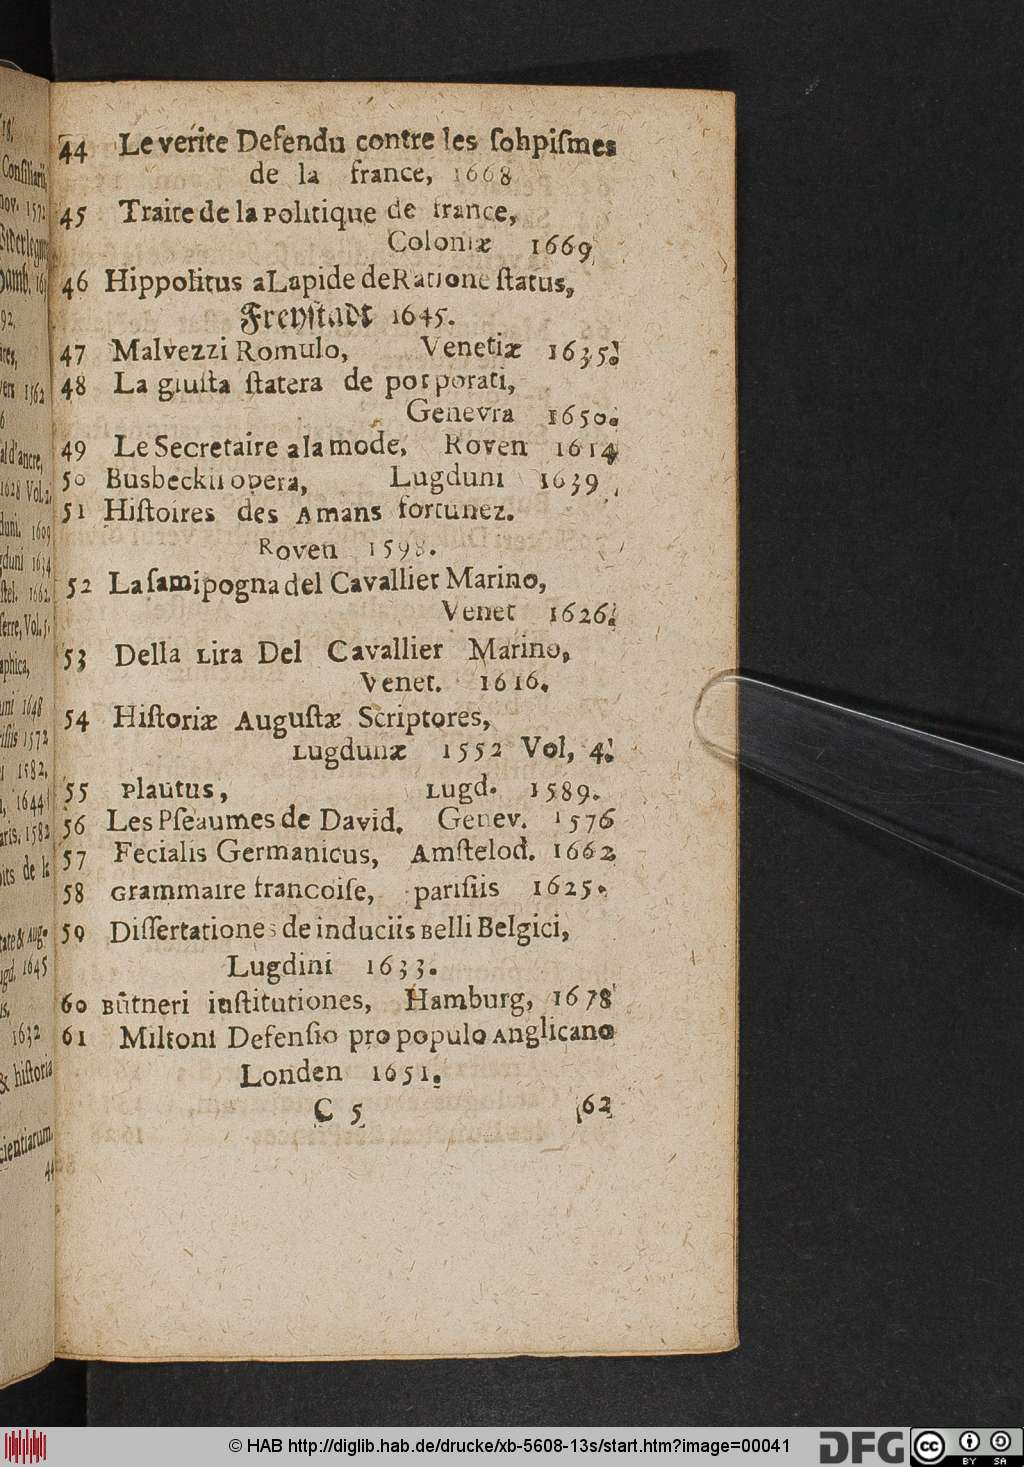 44 Le verite Defendu contre les ſohpiſmes
de la france, 1668
45 Traite de la Politique de france,
Coloniæ 1669
46 Hippolitus a Lapide de Ratione ſtatus,
Freyſtadt 1645.
47 Malvezzi Romulo, Venetiæ 1635.
48 La giuſta ſtatera de porporati,
Genevra 1650.
49 Le Secretaire a la mode, Roven 1614
50 Busbeckii opera, Lugduni 1639
51 Hiſtoires des Amans fortunez.
Roven 1598.
52 La ſamipogna del Cavallier Marino,
Venet 1626.
53 Della Lira Del Cavallier Marino,
Venet. 1616.
54 Hiſtoriæ Auguſtæ Scriptores,
Lugdunæ 1552 Vol, 4.
55 Plautus, Lugd. 1589.
56 Les Pſeaumes de David. Genev. 1576
57 Fecialis Germanicus, Amſtelod. 1662
58 Grammaire francoiſe, pariſiis 1625.
59 Diſſertationes de induciis Belli Belgici,
Lugdini 1633.
60 Bûtneri inſtitutiones, Hamburg, 1678
61 Miltoni Defenſio pro populo Anglicano
Londen 1651.
C 5 62
Conſiliarii,
1572
92.
1562
al d'ancre,
1628 Vol. 2.
duni. 1609
gduni 1634
ſtel. 1662.
ſerre, Vol. 5.
aphica,
1648
1572
1582,
1644
aris. 1582
its de la
tate & Aug.
gd. 1645
1632
& hiſtoria
cientiarum.
44
© HAB http://diglib.hab.de/drucke/xb-5608-13s/start.htm?image=00041
DFG
cc BY SA